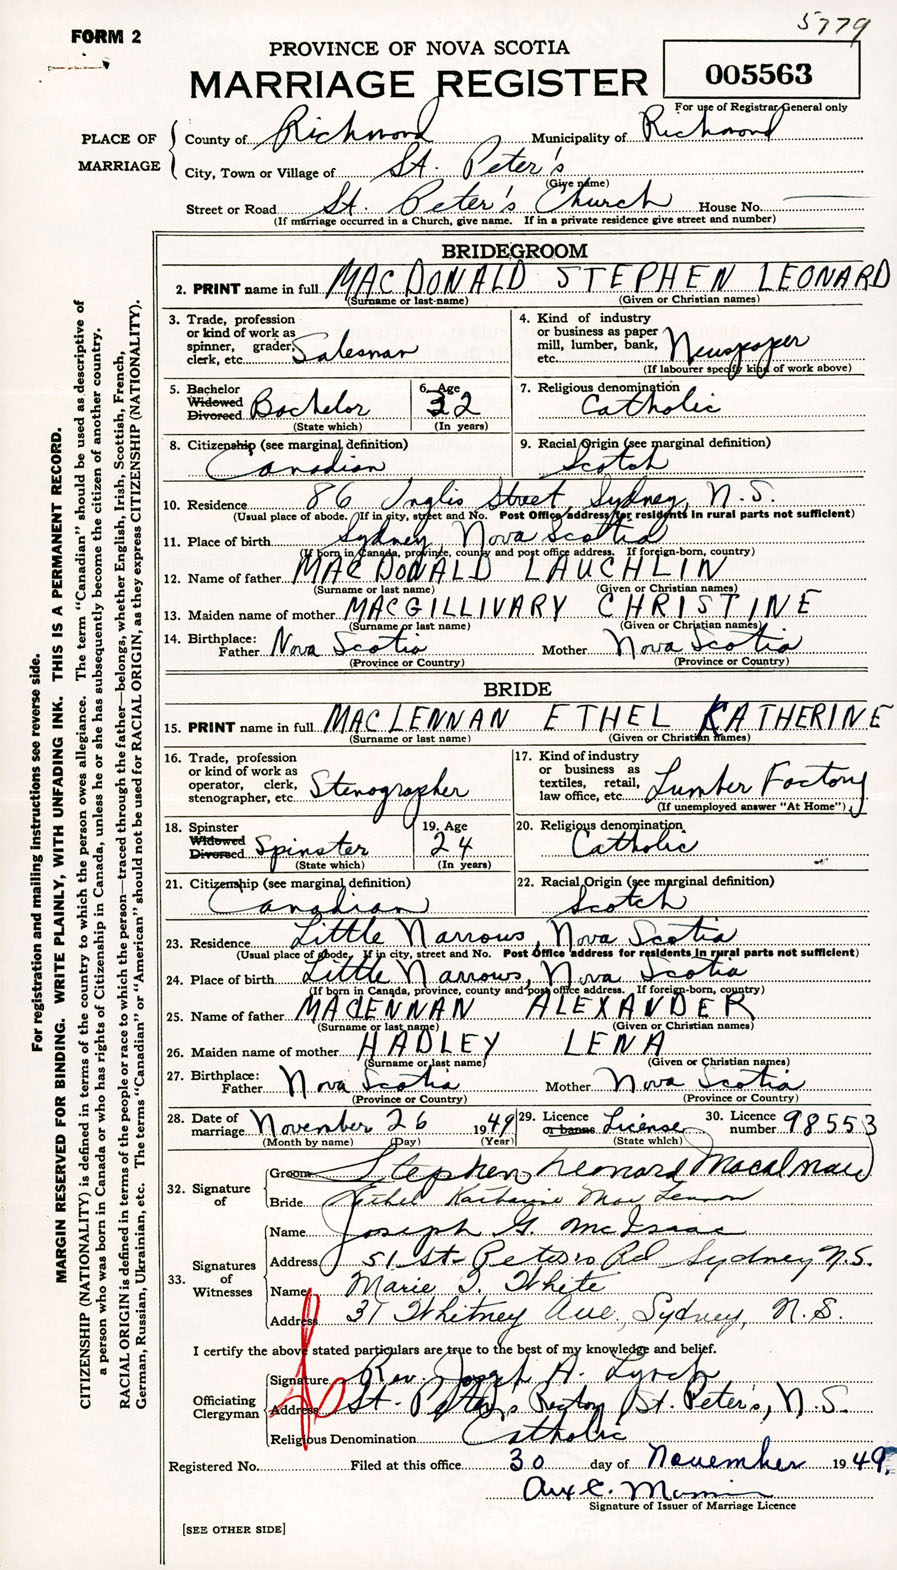 5779
FORM 2
PROVINCE OF NOVA SCOTIA
MARRIAGE REGISTER
005563
For use of Registrar General only
PLACE OF MARRIAGE
County of Richmond Municipality of Richmond
City, Town or Village of St. Peter's
(Give name)
Street or Road St. Peter's Church House No.
(If marriage occurred in a Church, give name. If in a private residence give street and number)
BRIDEGROOM
2. PRINT name in full MACDONALD STEPHEN LEONARD
(Surname or last name) (Given or Christian names)
3. Trade, profession or kind of work as spinner, grader, clerk, etc. Salesman
4. Kind of industry or business as paper mill, lumber, bank, etc. Newspaper
(If labourer specify kind of work above)
5. Bachelor Widowed Divorced Bachelor
(State which)
6. Age 32
(In years)
7. Religious denomination Catholic
8. Citizenship (see marginal definition) Canadian
9. Racial Origin (see marginal definition) Scotch
10. Residence 86 Inglis Street, Sydney, N.S.
(Usual place of abode. If in city, street and No. Post Office address for residents in rural parts not sufficient)
11. Place of birth Sydney, Nova Scotia
(If born in Canada, province, county and post office address. If foreign-born, country)
12. Name of father MACDONALD LAUCHLIN
(Surname or last name) (Given or Christian names)
13. Maiden name of mother MACGILLIVARY CHRISTINE
(Surname or last name) (Given or Christian names)
14. Birthplace: Father Nova Scotia Mother Nova Scotia
(Province or Country) (Province or Country)
BRIDE
15. PRINT name in full MACLENNAN ETHEL KATHERINE
(Surname or last name) (Given or Christian names)
16. Trade, profession or kind of work as operator, clerk, stenographer, etc. Stenographer
17. Kind of industry or business as textiles, retail, law office, etc. Lumber Factory
(If unemployed answer "At Home")
18. Spinster Widowed Divorced Spinster
(State which)
19. Age 24
(In years)
20. Religious denomination Catholic
21. Citizenship (see marginal definition) Canadian
22. Racial Origin (see marginal definition) Scotch
23. Residence Little Narrows, Nova Scotia
(Usual place of abode. If in city, street and No. Post Office address for residents in rural parts not sufficient)
24. Place of birth Little Narrows, Nova Scotia
(If born in Canada, province, county and post office address. If foreign-born, country)
25. Name of father MACLENNAN ALEXANDER
(Surname or last name) (Given or Christian names)
26. Maiden name of mother HADLEY LENA
(Surname or last name) (Given or Christian names)
27. Birthplace: Father Nova Scotia Mother Nova Scotia
(Province or Country) (Province or Country)
28. Date of marriage November 26 1949
(Month by name) (Day) (Year)
29. Licence or banns License
(State which)
30. Licence number 98553
32. Signature of
Groom Stephen Leonard
Bride Ethel Katharine MacLennan
33. Signatures of Witnesses
Name Joseph G. McIsaac
Address 51 St. Peters Rd Sydney N.S.
Name Marie White
Address 31 Whitney Ave, Sydney, N.S.
I certify the above stated particulars are true to the best of my knowledge and belief.
Officiating Clergyman
Signature Rev. Joseph A. Lynch
Address St. Peter's Rectory St. Peter's, N.S.
Religious Denomination Catholic
Registered No. Filed at this office 30 day of November 1949
Signature of Issuer of Marriage Licence
[SEE OTHER SIDE]
For registration and mailing instructions see reverse side.
MARGIN RESERVED FOR BINDING. WRITE PLAINLY, WITH UNFADING INK. THIS IS A PERMANENT RECORD.
CITIZENSHIP (NATIONALITY) is defined in terms of the country to which the person owes allegiance. The term "Canadian" should be used as descriptive of
a person who was born in Canada or who has rights of Citizenship in Canada, unless he or she has subsequently become the citizen of another country.
RACIAL ORIGIN is defined in terms of the people or race to which the person—traced through the father—belongs, whether English, Irish, Scottish, French,
German, Russian, Ukrainian, etc. The terms "Canadian" or "American" should not be used for RACIAL ORIGIN, as they express CITIZENSHIP (NATIONALITY).